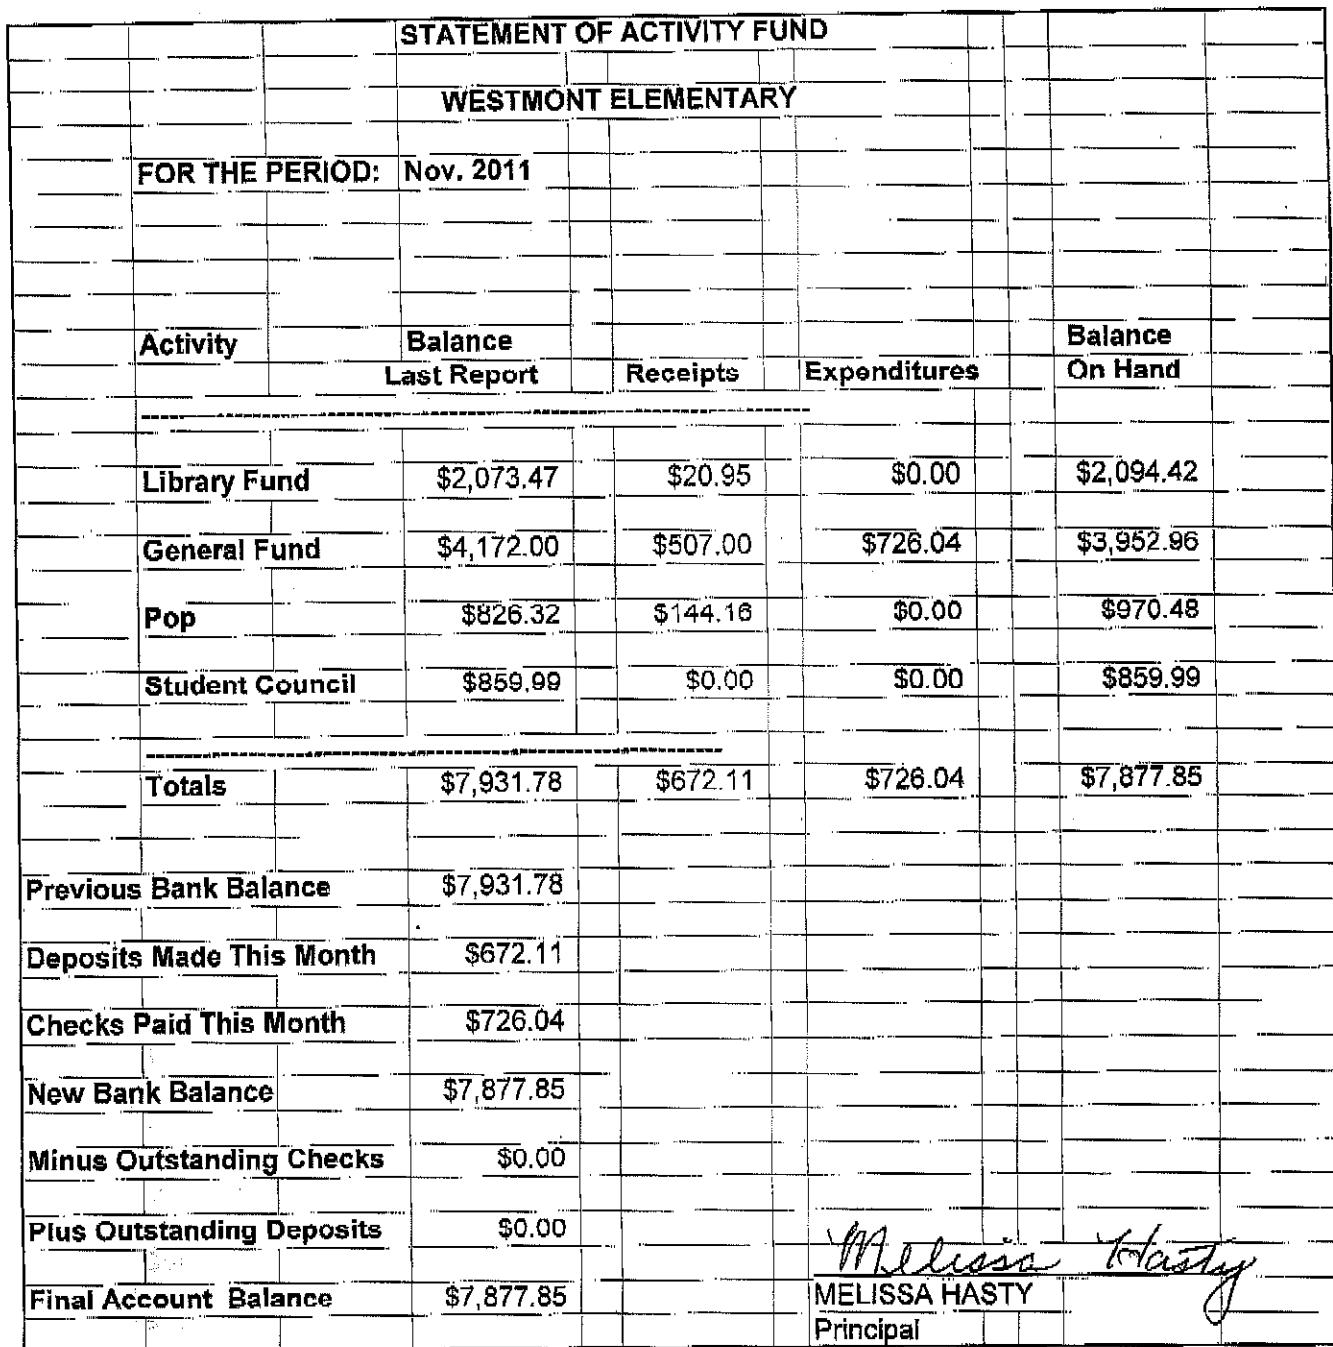 STATEMENT OF ACTIVITY FUND
WESTMONT ELEMENTARY
FOR THE PERIOD: Nov. 2011
Activity Balance Balance
Last Report Receipts Expenditures On Hand
Library Fund $2,073.47 $20.95 $0.00 $2,094.42
General Fund $4,172.00 $507.00 $726.04 $3,952.96
Pop $826.32 $144.16 $0.00 $970.48
Student Council $859.99 $0.00 $0.00 $859.99
Totals $7,931.78 $672.11 $726.04 $7,877.85
Previous Bank Balance $7,931.78
Deposits Made This Month $672.11
Checks Paid This Month $726.04
New Bank Balance $7,877.85
Minus Outstanding Checks $0.00
Plus Outstanding Deposits $0.00 Melissa Hasty
Final Account Balance $7,877.85 MELISSA HASTY
Principal